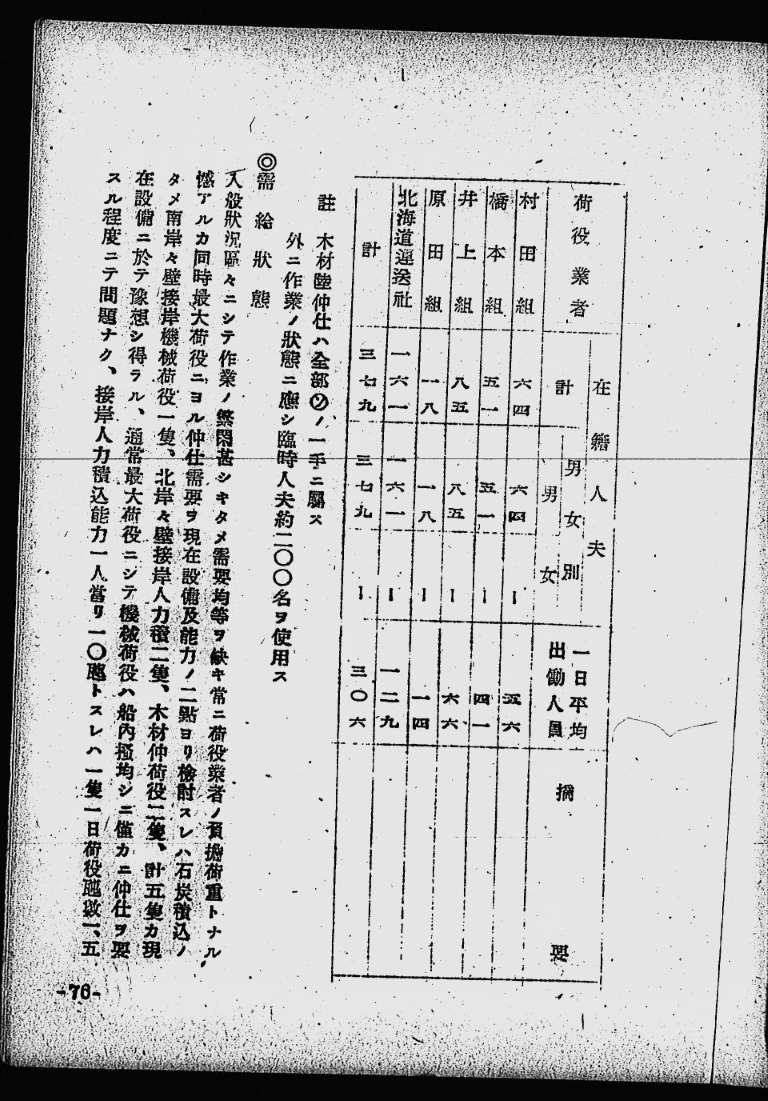 荷役業者 在籍人夫 計 男女別 男 女 一日平均出働人員 摘要
村田組 六四 六四 ー 五六
橋本組 五一 五一 ー 四一
井上組 八五 八五 ー 六六
原田組 一八 一八 ー 一四
北海道運送社 一六一 一六一 ー 一二九
計 三七九 三七九 ー 三〇六
註 木材陸仲仕ハ全部ノ一手ニ屬ス
外ニ作業ノ狀態ニ應シ臨時人夫約二〇〇名ヲ使用ス
◎需給狀態
入般狀況區々ニシテ作業ノ繁閑甚シキタメ需要均等ヲ缺キ常ニ荷役業者ノ負擔荷重トナル
憾アルカ同時最大荷役ニヨル仲仕需要ヲ現在設備及能力ノ二點ヨリ檢討スレハ石炭積込ノ
タメ南岸々壁接岸機械荷役一隻、北岸々壁接岸人力積二隻、木材仲荷役二隻、計五隻カ現
在設備ニ於テ豫想シ得ラル、通常最大荷役ニシテ機械荷役ハ船內掻均シニ僅カニ仲仕ヲ要
スル程度ニテ問題ナク、接岸人力積込能力一人當リ一〇瓲トスレハ一隻一日荷役瓲數一、五
-76-